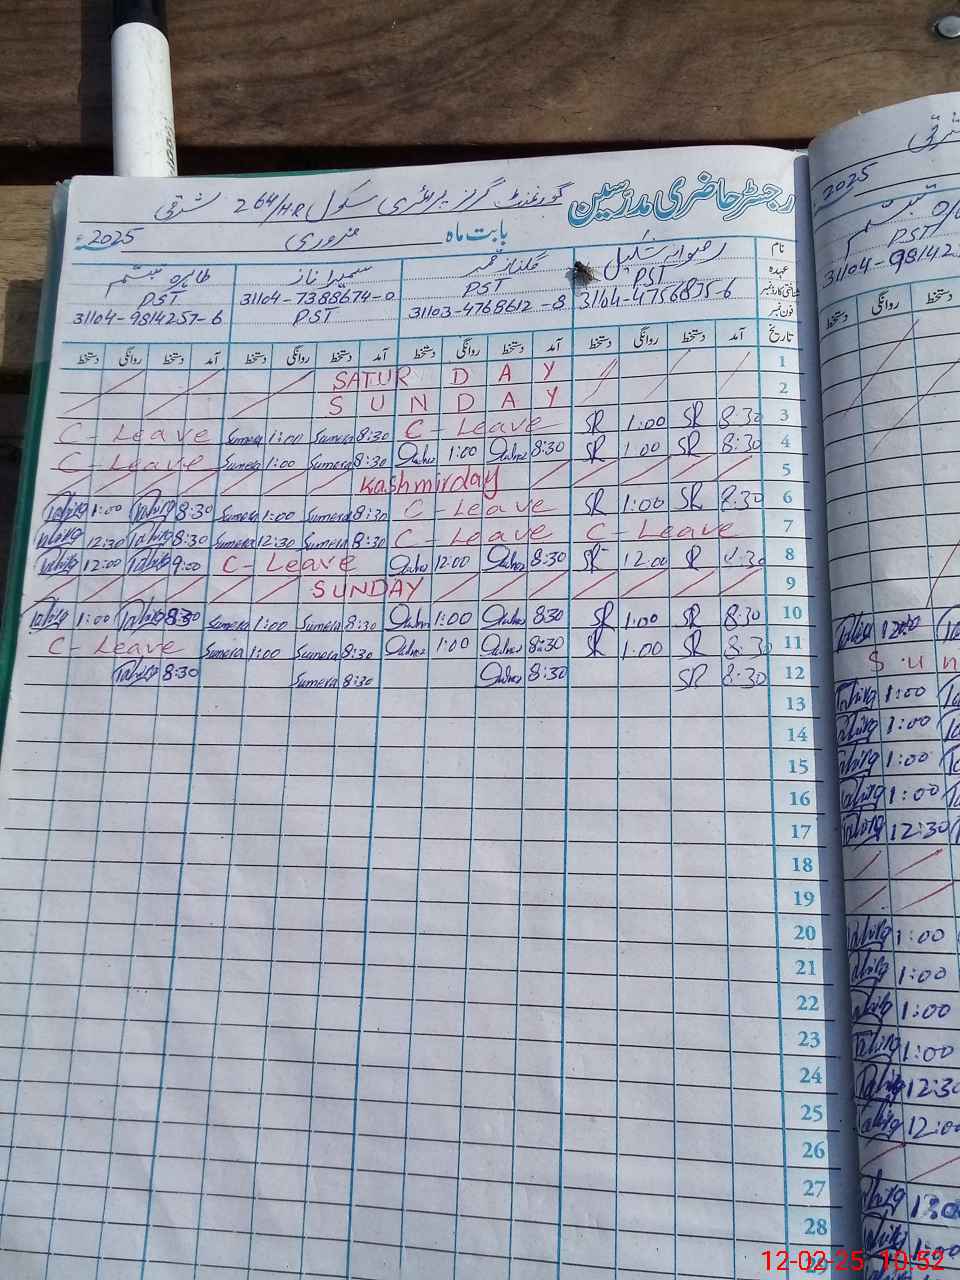 رجسٹر حاضری مدرسین گورنمنٹ گرلز پرائمری سکول 264/HR شرقی
بابت ماہ فروری 2025ء
نام رضوانہ شکیل گلناز قمر سمیرا ناز طاہرہ تبسم
عہدہ PST PST 31104-7388674-0 PST
شناختی کارڈ نمبر 31104-4756835-6 31103-4768612-8 PST 31104-9814257-6
فون نمبر
تاریخ آمد دستخط روانگی دستخط آمد دستخط روانگی دستخط آمد دستخط روانگی دستخط آمد دستخط روانگی دستخط
SATUR D A Y 1
S U N D A Y 2
C - Leave Sumera 1:00 Sumera 8:30 C - Leave SR 1:00 SR 8:30 3
C - Leave Sumera 1:00 Sumera 8:30 1:00 8:30 SR 1:00 SR 8:30 4
Kashmirday 5
Tahira 1:00 Tahira 8:30 Sumera 1:00 Sumera 8:30 C - Leave SR 1:00 SR 8:30 6
Tahira 12:30 Tahira 8:30 Sumera 12:30 Sumera 8:30 C - Leave C - Leave 7
Tahira 12:00 Tahira 9:00 C - Leave 12:00 8:30 SR 12:00 SR 8:30 8
SUNDAY 9
Tahira 1:00 Tahira 8:30 Sumera 1:00 Sumera 8:30 1:00 8:30 SR 1:00 SR 8:30 10
C - Leave Sumera 1:00 Sumera 8:30 1:00 8:30 SR 1:00 SR 8:30 11
Tahira 8:30 Sumera 8:30 8:30 SR 8:30 12
13
14
15
16
17
18
19
20
21
22
23
24
25
26
27
28
29
شرقی
2025
تبسم
PST
31104-98142
دستخط روانگی دستخط
Tahira 12:00
S u n
Tahira 1:00
Tahira 1:00
Tahira 1:00
Tahira 1:00
Tahira 12:30
Tahira 1:00
Tahira 1:00
Tahira 1:00
Tahira 1:00
Tahira 12:30
Tahira 12:00
Tahira 1:00
Tahira 1:00
12-02-25 10:52